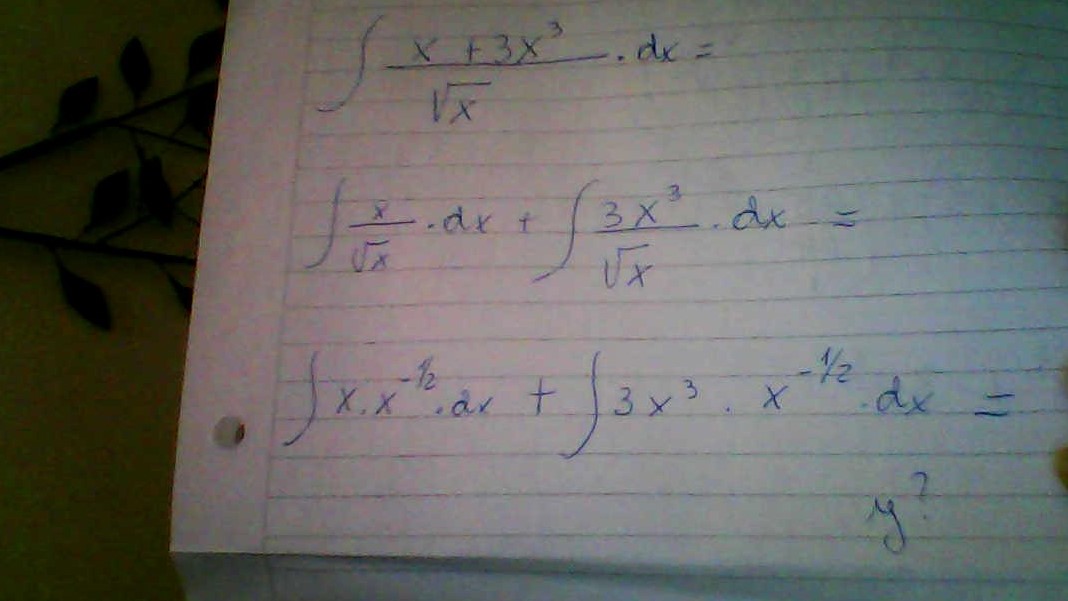 ∫ (x + 3x³)/√x . dx =
∫ x/√x . dx + ∫ 3x³/√x . dx =
∫ x . x^(-1/2) . dx + ∫ 3x³ . x^(-1/2) . dx =
y?